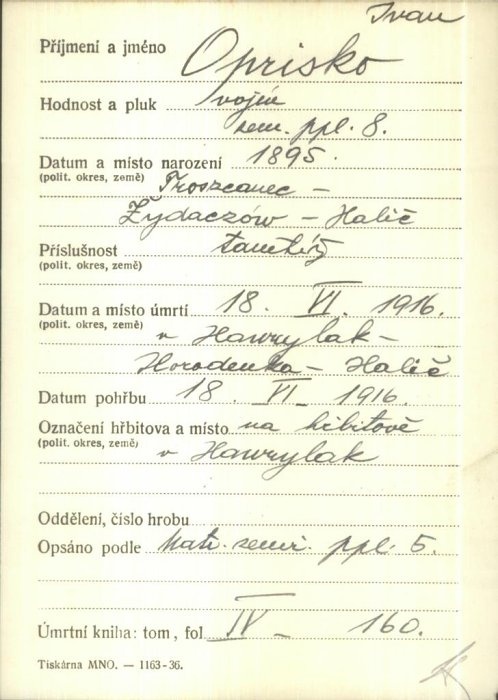 Ivan
Příjmení a jméno Oprisko
Hodnost a pluk vojín
zem. ppl. 8.
Datum a místo narození 1895.
(polit. okres, země) Troszcanec -
Żydaczów - Halič
Příslušnost tamtéž
(polit. okres, země)
Datum a místo úmrtí 18. VI. 1916.
(polit. okres, země) v Hawrylak -
Horodenka - Halič
Datum pohřbu 18 VI 1916.
Označení hřbitova a místo na hřbitově
(polit. okres, země) v Hawrylak
Oddělení, číslo hrobu
Opsáno podle Matr. zemř. ppl. 5.
Úmrtní kniha: tom, fol. IV - 160.
Tiskárna MNO. — 1163-36.